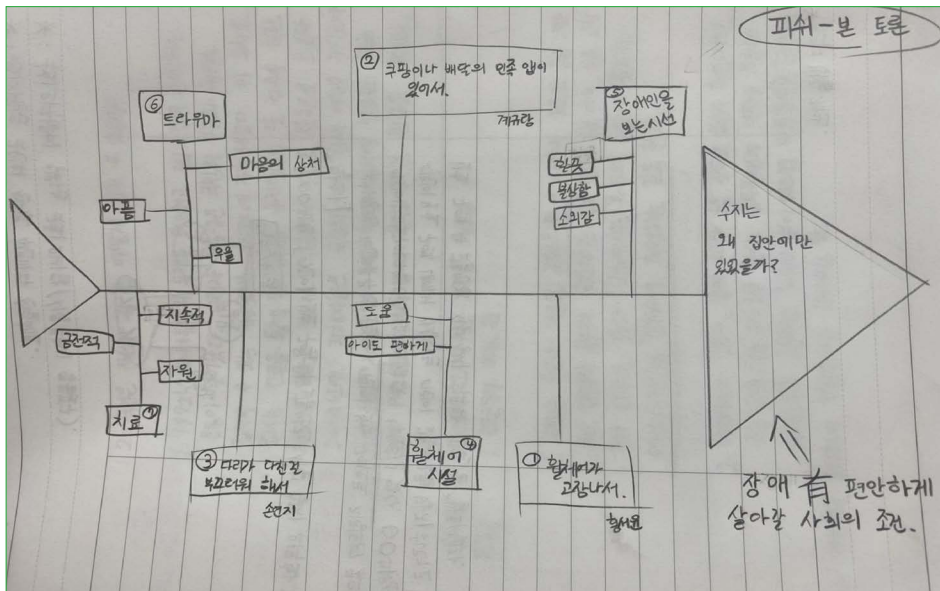 피쉬-본 토론
② 쿠팡이나 배달의 민족 앱이
있어서.
계규랑
⑥
트라우마
마음의 상처
아픔
우울
⑤
장애인을
보는시선
핟픗
불상함
소외감
수지는
왜 집안에만
있었을까?
지속적
금전적
자원
치료⑦
③ 다리가 다친걸
부끄러워 해서
손연지
도움
아이도 편하게
휠체어 ④
시설
① 휠체어가
고장나서.
황서윤
장애 有 편안하게
살아갈 사회의 조건.